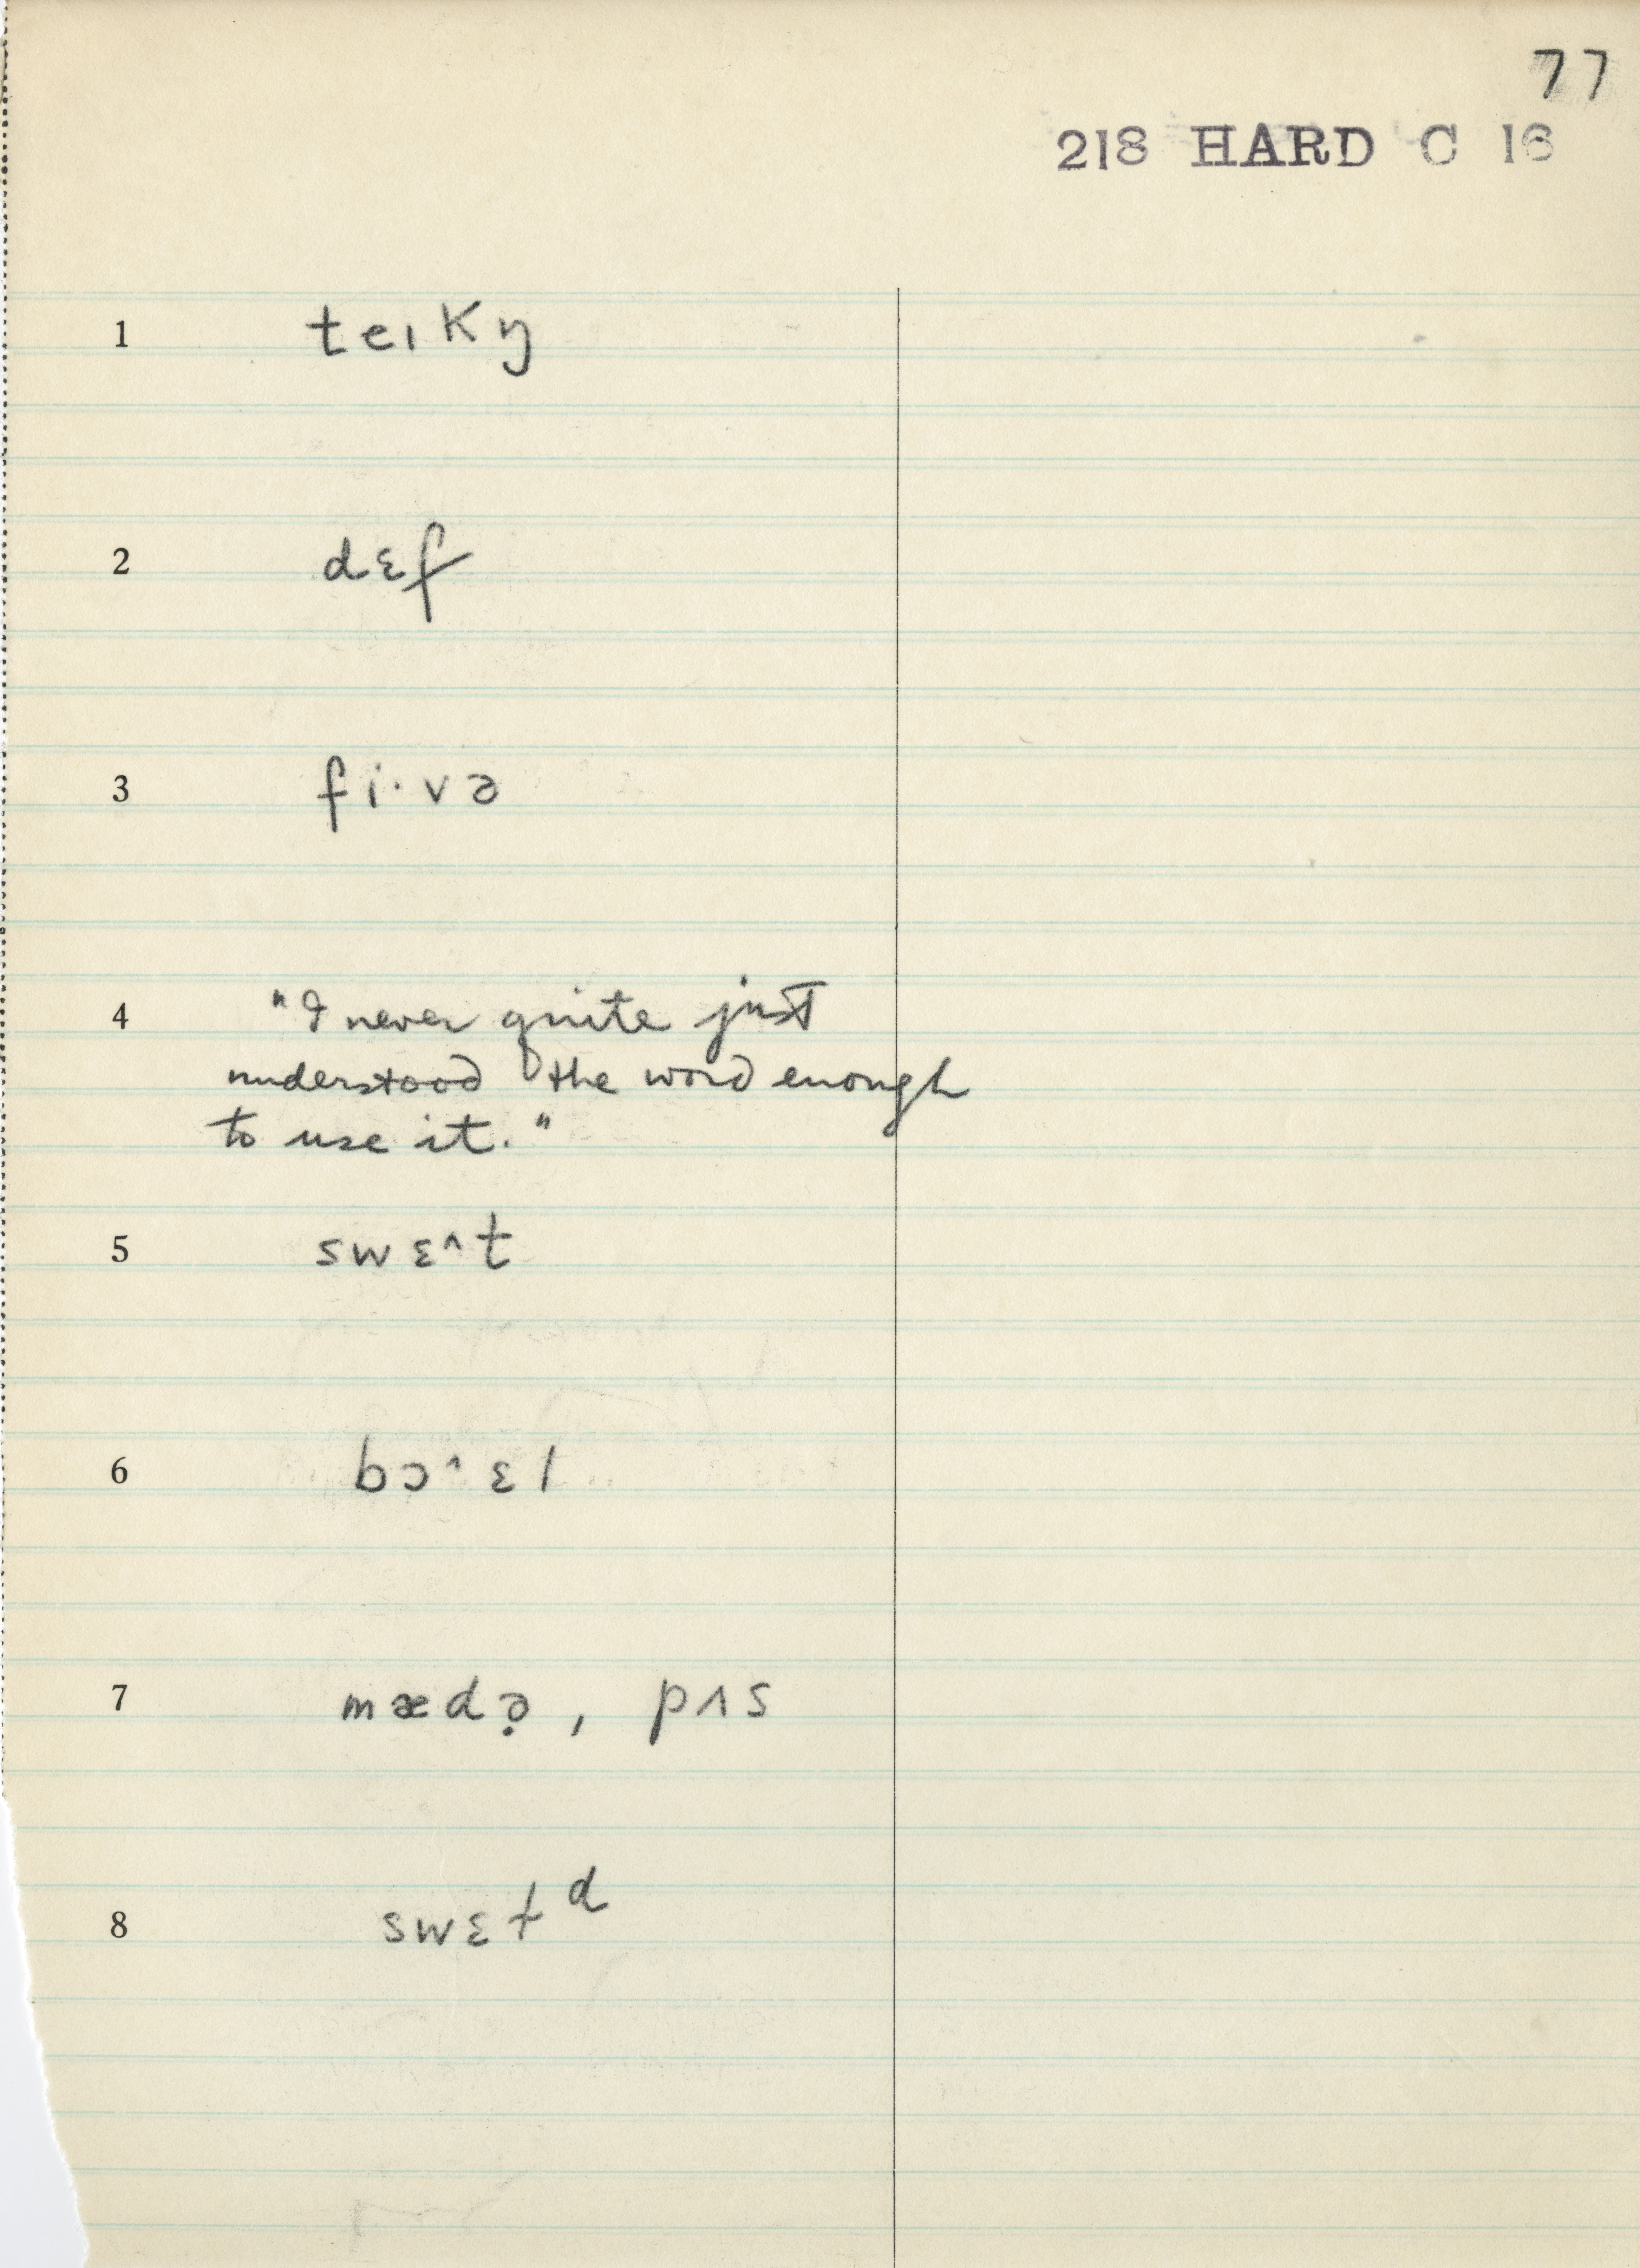 77
218 HARD C 16
1 teıkŋ
2 dɛf
3 fi·və
4 "I never quite just
understood the word enough
to use it."
5 swɛ^t
6 bɔ^ɛl
7 mædə̣, pʌs
8 swɛtᵈ